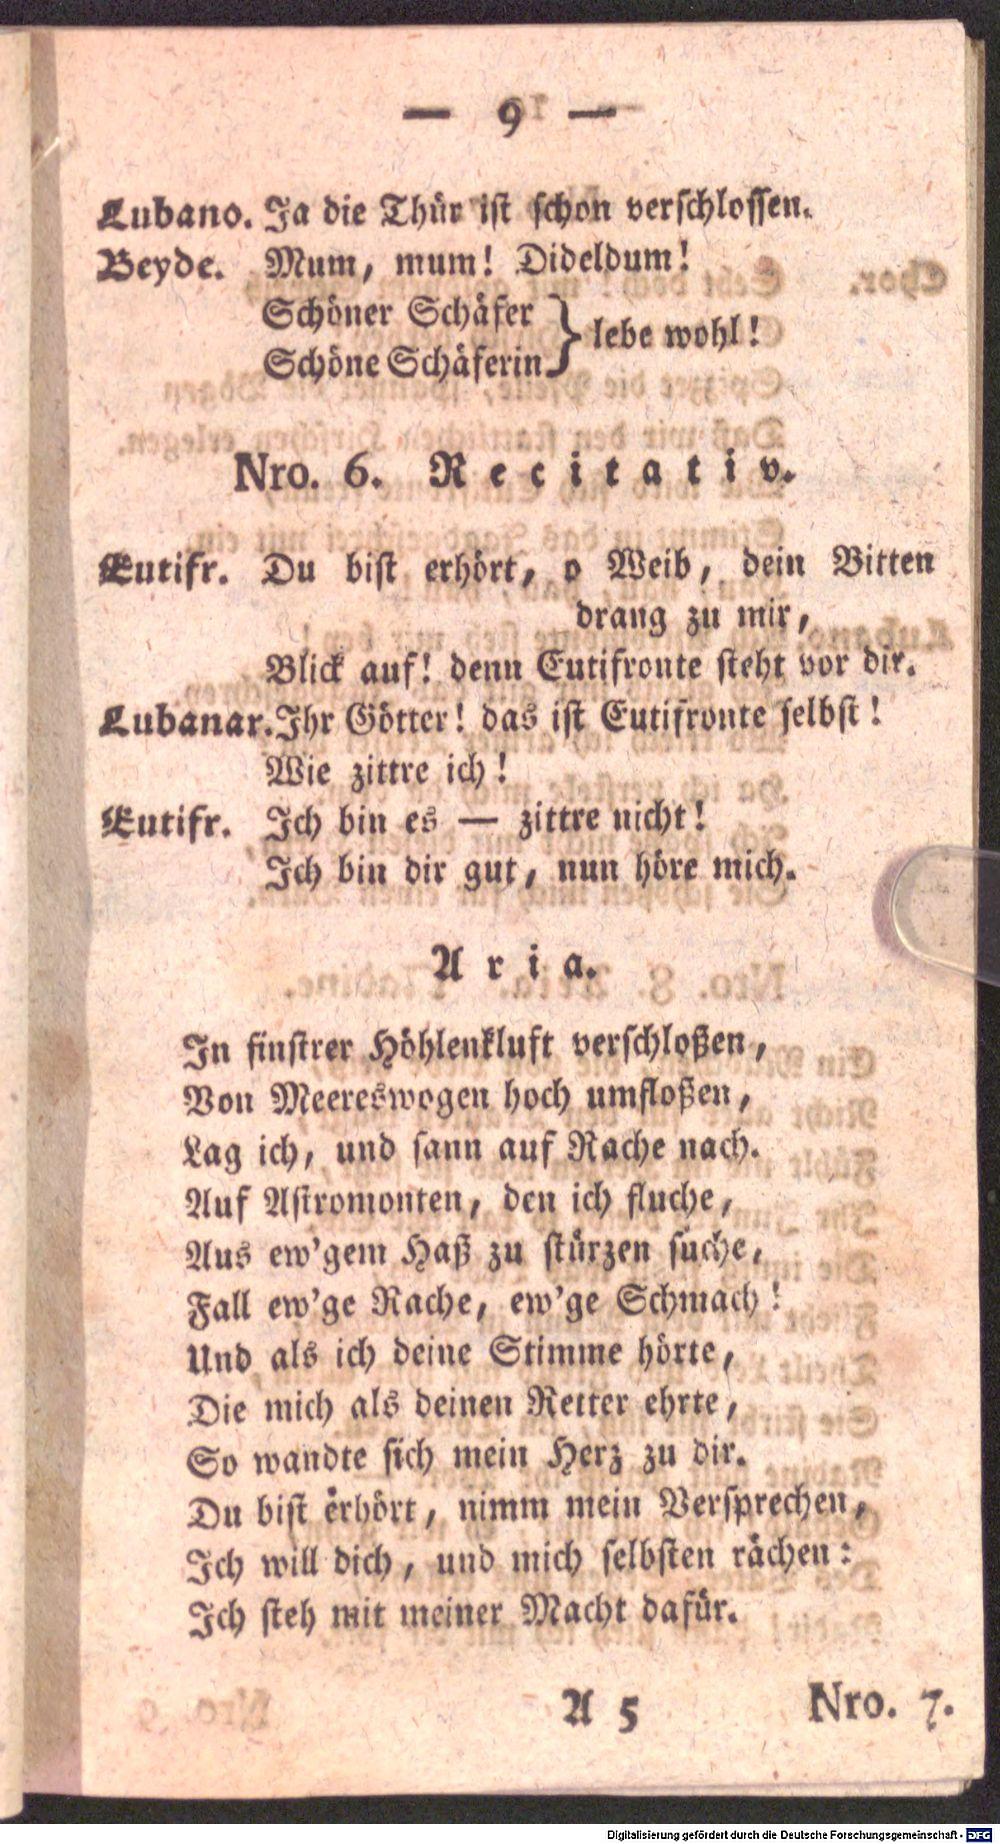 — 9 —
Lubano. Ja die Thür ist schon verschlossen.
Beyde. Mum, mum! Dideldum!
Schöner Schäfer
Schöne Schäferin } lebe wohl!
Nro. 6. Recitativ.
Eutifr. Du bist erhört, o Weib, dein Bitten
drang zu mir,
Blick auf! denn Eutifronte steht vor dir.
Lubanar. Ihr Götter! das ist Eutifronte selbst!
Wie zittre ich!
Eutifr. Ich bin es — zittre nicht!
Ich bin dir gut, nun höre mich.
Aria.
In finstrer Höhlenkluft verschloßen,
Von Meereswogen hoch umfloßen,
Lag ich, und sann auf Rache nach.
Auf Astromonten, den ich fluche,
Aus ew'gem Haß zu stürzen suche,
Fall ew'ge Rache, ew'ge Schmach!
Und als ich deine Stimme hörte,
Die mich als deinen Retter ehrte,
So wandte sich mein Herz zu dir.
Du bist erhört, nimm mein Versprechen,
Ich will dich, und mich selbsten rächen:
Ich steh mit meiner Macht dafür.
A 5 Nro. 7.
Digitalisierung gefördert durch die Deutsche Forschungsgemeinschaft - DFG